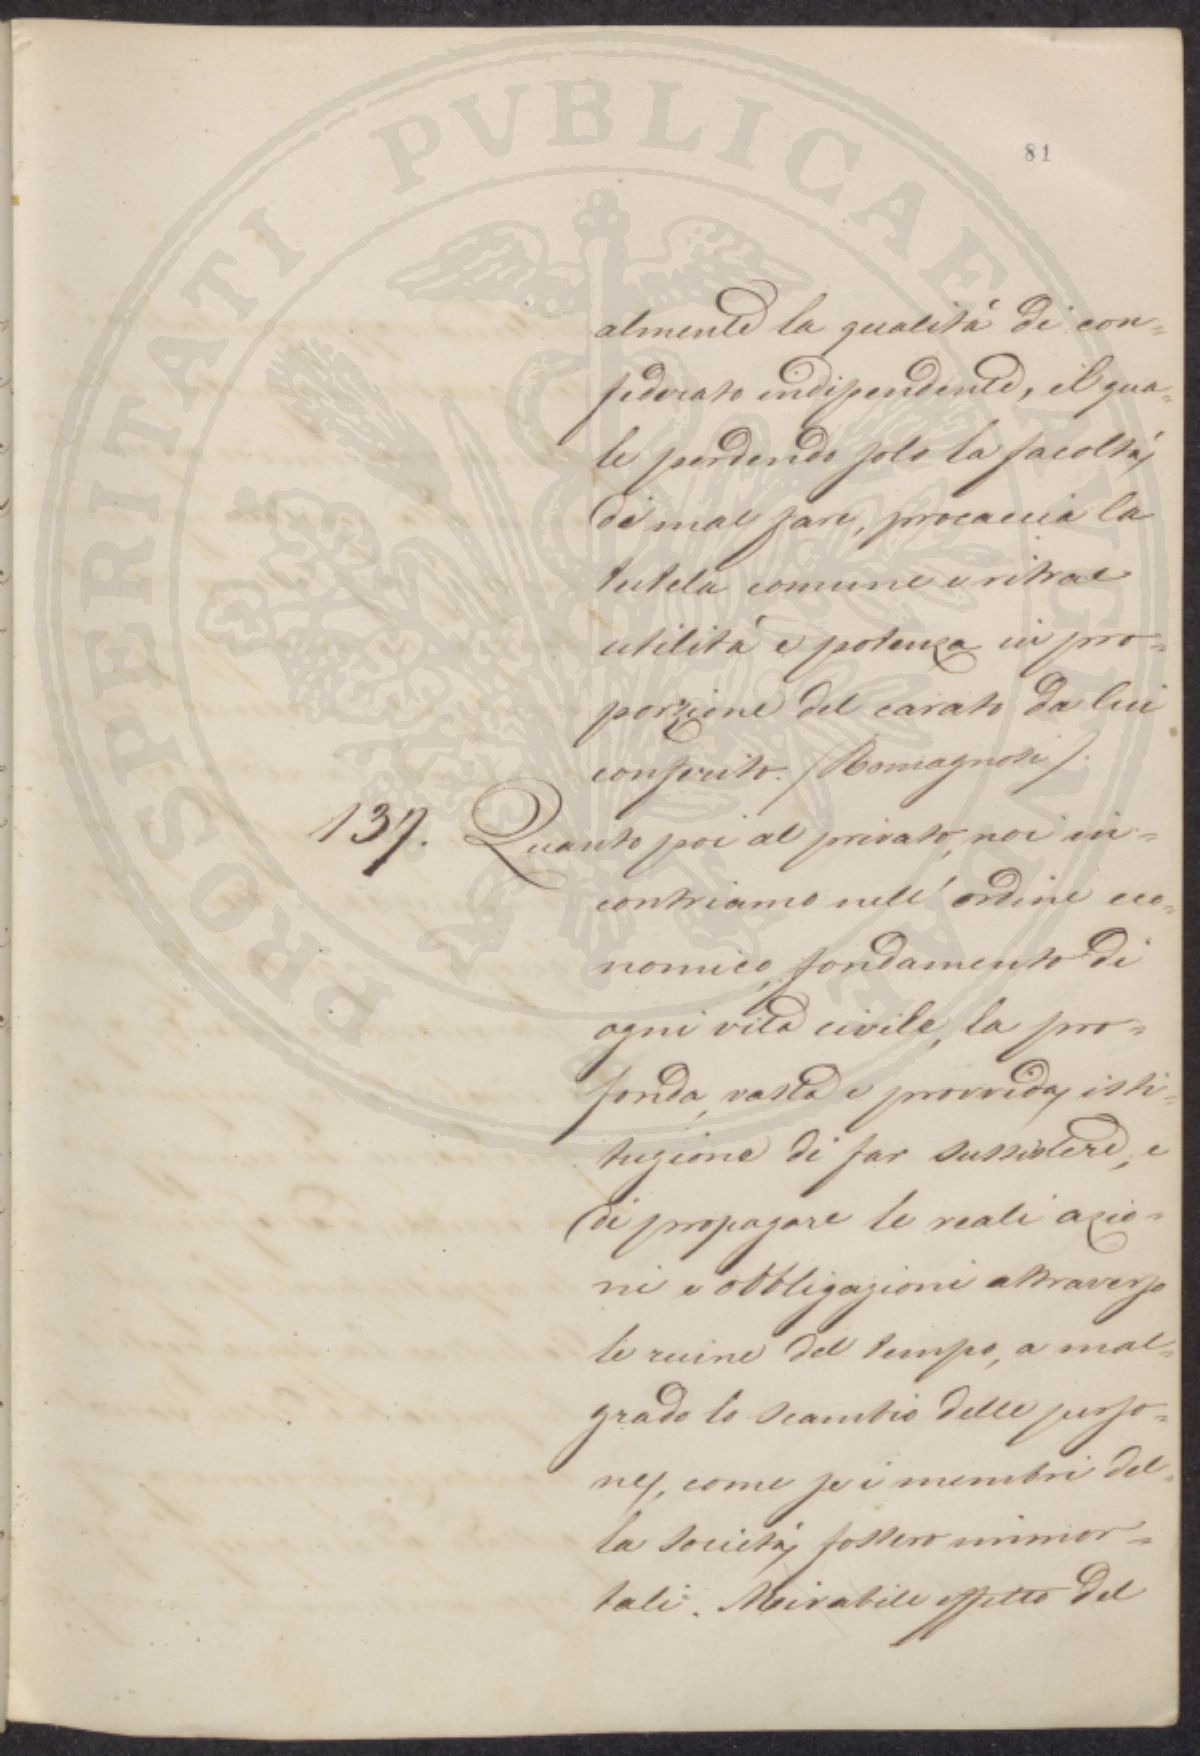 PROSPERITATI PVBLICAE AVGENDAE
81
almente la qualità di con=
federato indipendente, il qua=
le perdendo solo la facoltà
di mal fare, procaccia la
tutela comune e ritrae
utilità e potenza in pro=
porzione del carato da lui
conferito. (Romagnosi).
137. Quanto poi al privato, noi in=
contriamo nell' ordine eco=
nomico, fondamento di
ogni vita civile, la pro=
fonda, vasta e provvida isti=
tuzione di far sussistere, e
di propagare le reali azio=
ni e obbligazioni attraverso
le ruine del tempo, a mal=
grado lo scambio delle perso=
ne, come se i membri del=
la società fossero immor=
tali. Mirabile effetto del